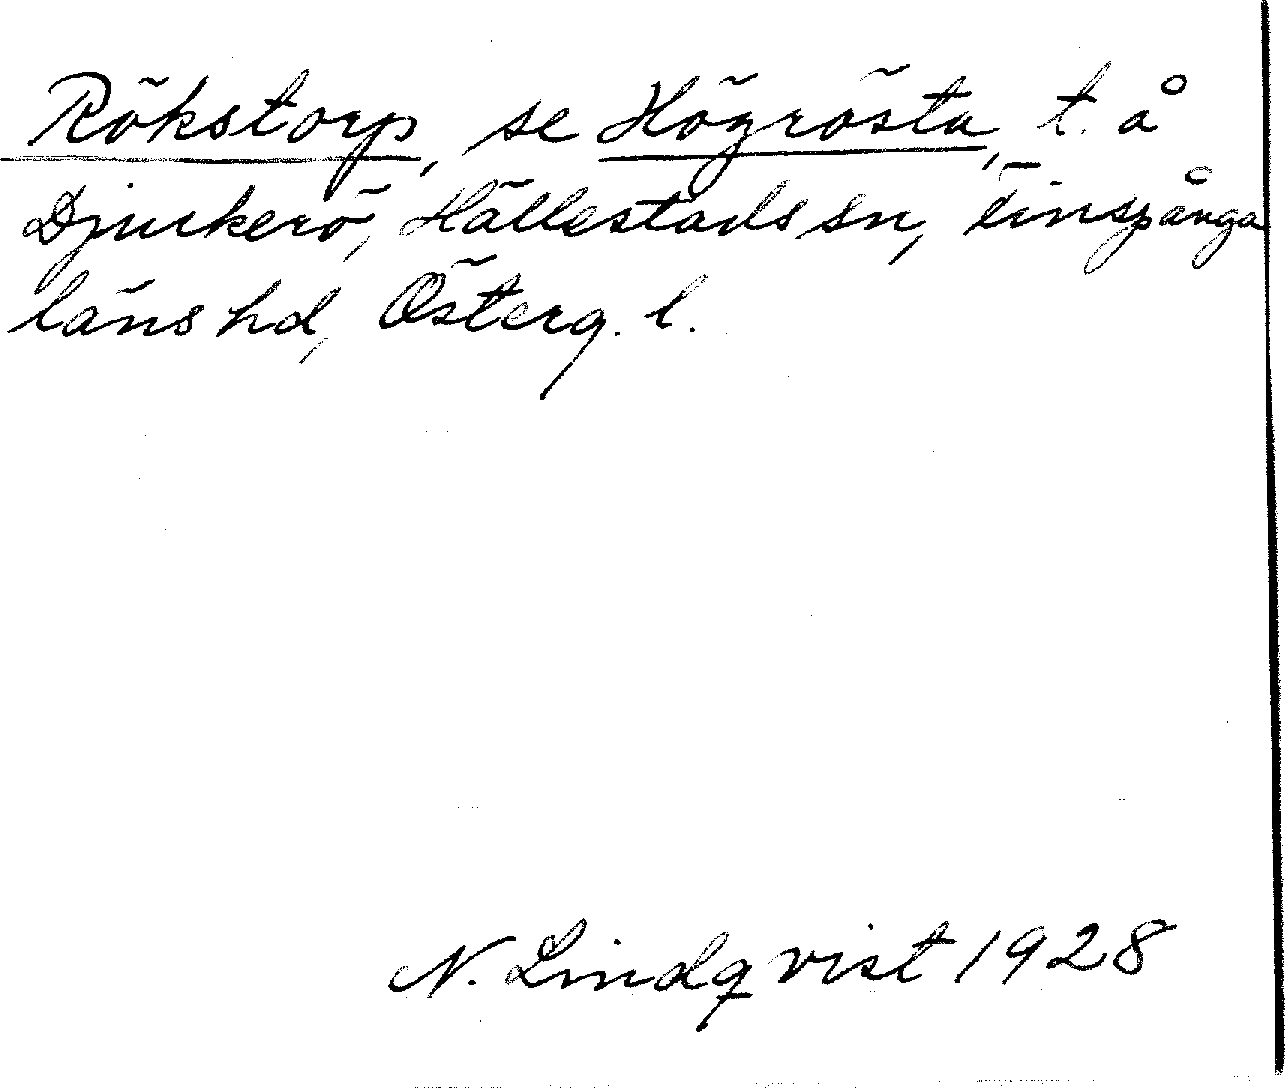 Rökstorp, se Högrösta, t. å
Djurkerö, Hällestads sn, Finspånga
läns hd, Österg. l.
N. Lindqvist 1928